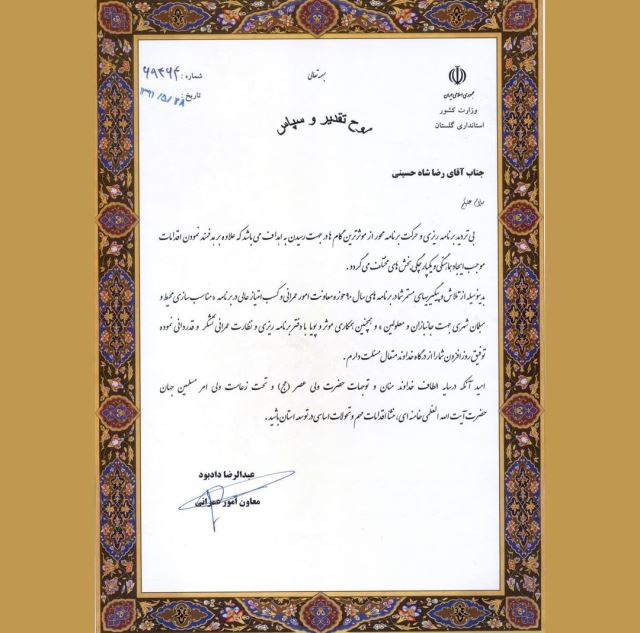 بسمه تعالی
جمهوری اسلامی ایران
وزارت کشور
استانداری گلستان
شماره : ۶۹۴۶۴
تاریخ : ۱۳۹۱/۵/۲۸
لوح تقدیر و سپاس
جناب آقای رضا شاه حسینی
سلام علیکم
بی تردید برنامه ریزی و حرکت برنامه محور از موثرترین گام ها در جهت رسیدن به اهداف می باشد که علاوه بر هدفمند نمودن اقدامات
موجب ایجاد هماهنگی و یکپارچگی بخش های مختلف می گردد .
بدینوسیله از تلاش و پیگیریهای مستمر شما در برنامه های سال ۹۰ حوزه معاونت امور عمرانی و کسب امتیاز عالی در برنامه « مناسب سازی محیط و
مبلمان شهری جهت جانبازان و معلولین » و همچنین همکاری موثر و پویا با دفتر برنامه ریزی و نظارت عمرانی تشکر و قدردانی نموده
توفیق روزافزون شما را از درگاه خداوند متعال مسئلت دارم .
امید آنکه در سایه الطاف خداوند منان و توجهات حضرت ولی عصر (عج) و تحت زعامت ولی امر مسلمین جهان
حضرت آیت اله العظمی خامنه ای، منشا اقدامات مهم و تحولات اساسی در توسعه استان باشید .
عبدالرضا دادبود
معاون امور عمرانی